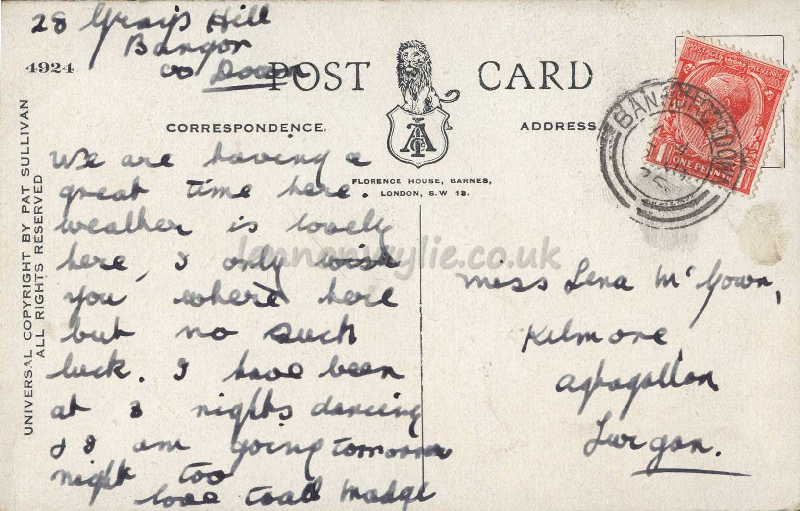 28 Gray's Hill
Bangor
Co Down
4924
POST CARD
CORRESPONDENCE.
ADDRESS
FLORENCE HOUSE, BARNES,
LONDON, S.W 13.
UNIVERSAL COPYRIGHT BY PAT SULLIVAN
ALL RIGHTS RESERVED
We are having a
great time here.
weather is lovely
here, I only wish
you where here
but no such
luck. I have been
at 3 nights dancing
& I am going tomorrow
night too
love to all Madge
Miss Lena McGown,
Kilmore,
Aghagallon
Lurgan.
BANGOR CO DOWN
ONE PENNY